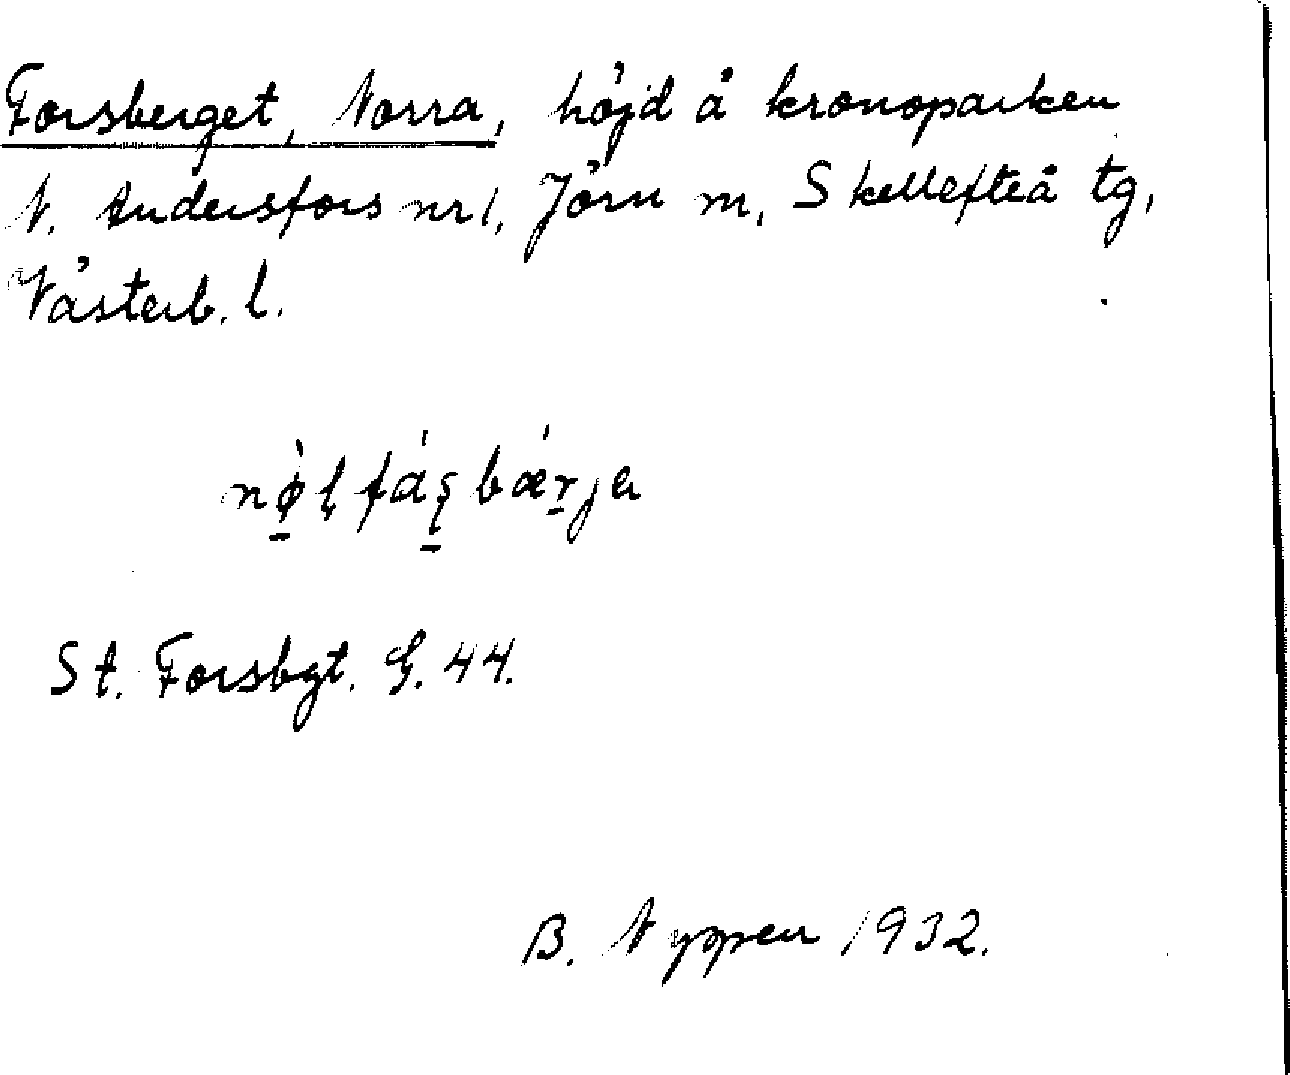 Forsberget, Norra, höjd å kronoparken
N. Andersfors nr 1, Jörn m, Skellefteå tg,
Västerb. l.
nø̀l fáʂbǽrja
St. Forsbgt. G. 44.
B. Nyppen 1932.